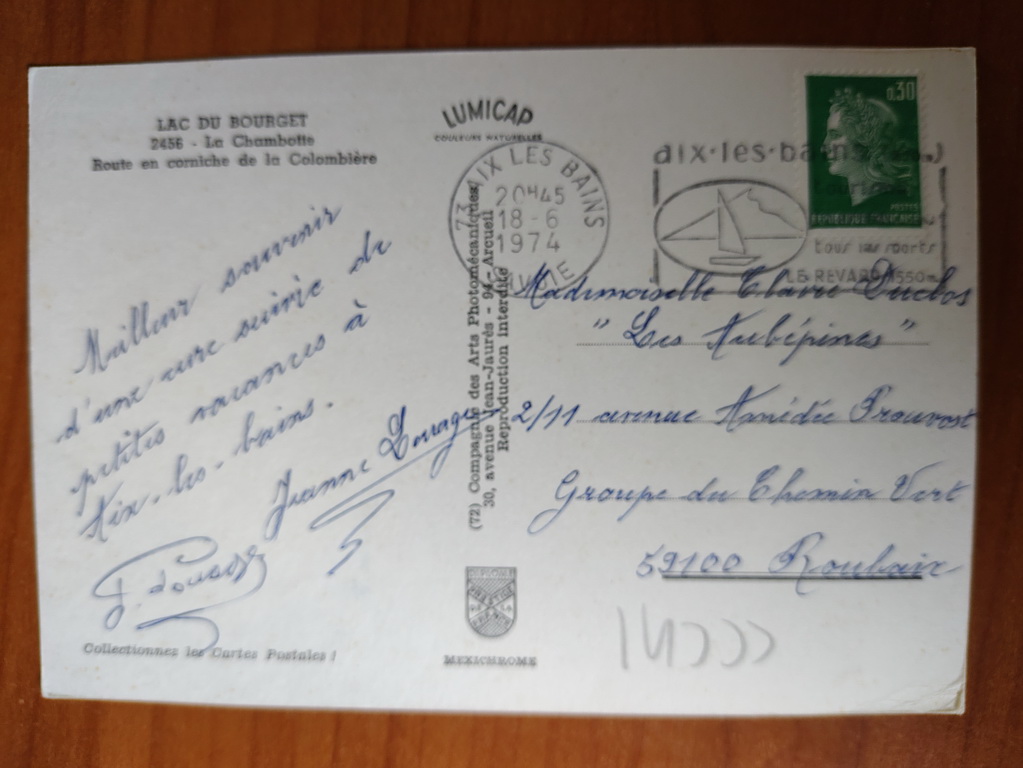 LAC DU BOURGET
2456 - La Chambotte
Route en corniche de la Colombière
LUMICAP
COULEURS NATURELLES
73 AIX LES BAINS
20H45
18-6
1974
SAVOIE
aix·les·bains
tous les sports
LE REVARD 1550m
0,30
POSTES
REPUBLIQUE FRANCAISE
Meilleur souvenir
d'une cure suivie de
petites vacances à
Aix-les-bains.
Jeanne
Collectionnez les Cartes Postales !
(72) Compagnie des Arts Photomécaniques
30, avenue Jean-Jaurès - 94 - Arcueil
Reproduction interdite
MEXICHROME
Mademoiselle Claire Duclos
"Les Aubépines"
2/11 avenue Amédée Prouvost
Groupe du Chemin Vert
59100 Roubaix